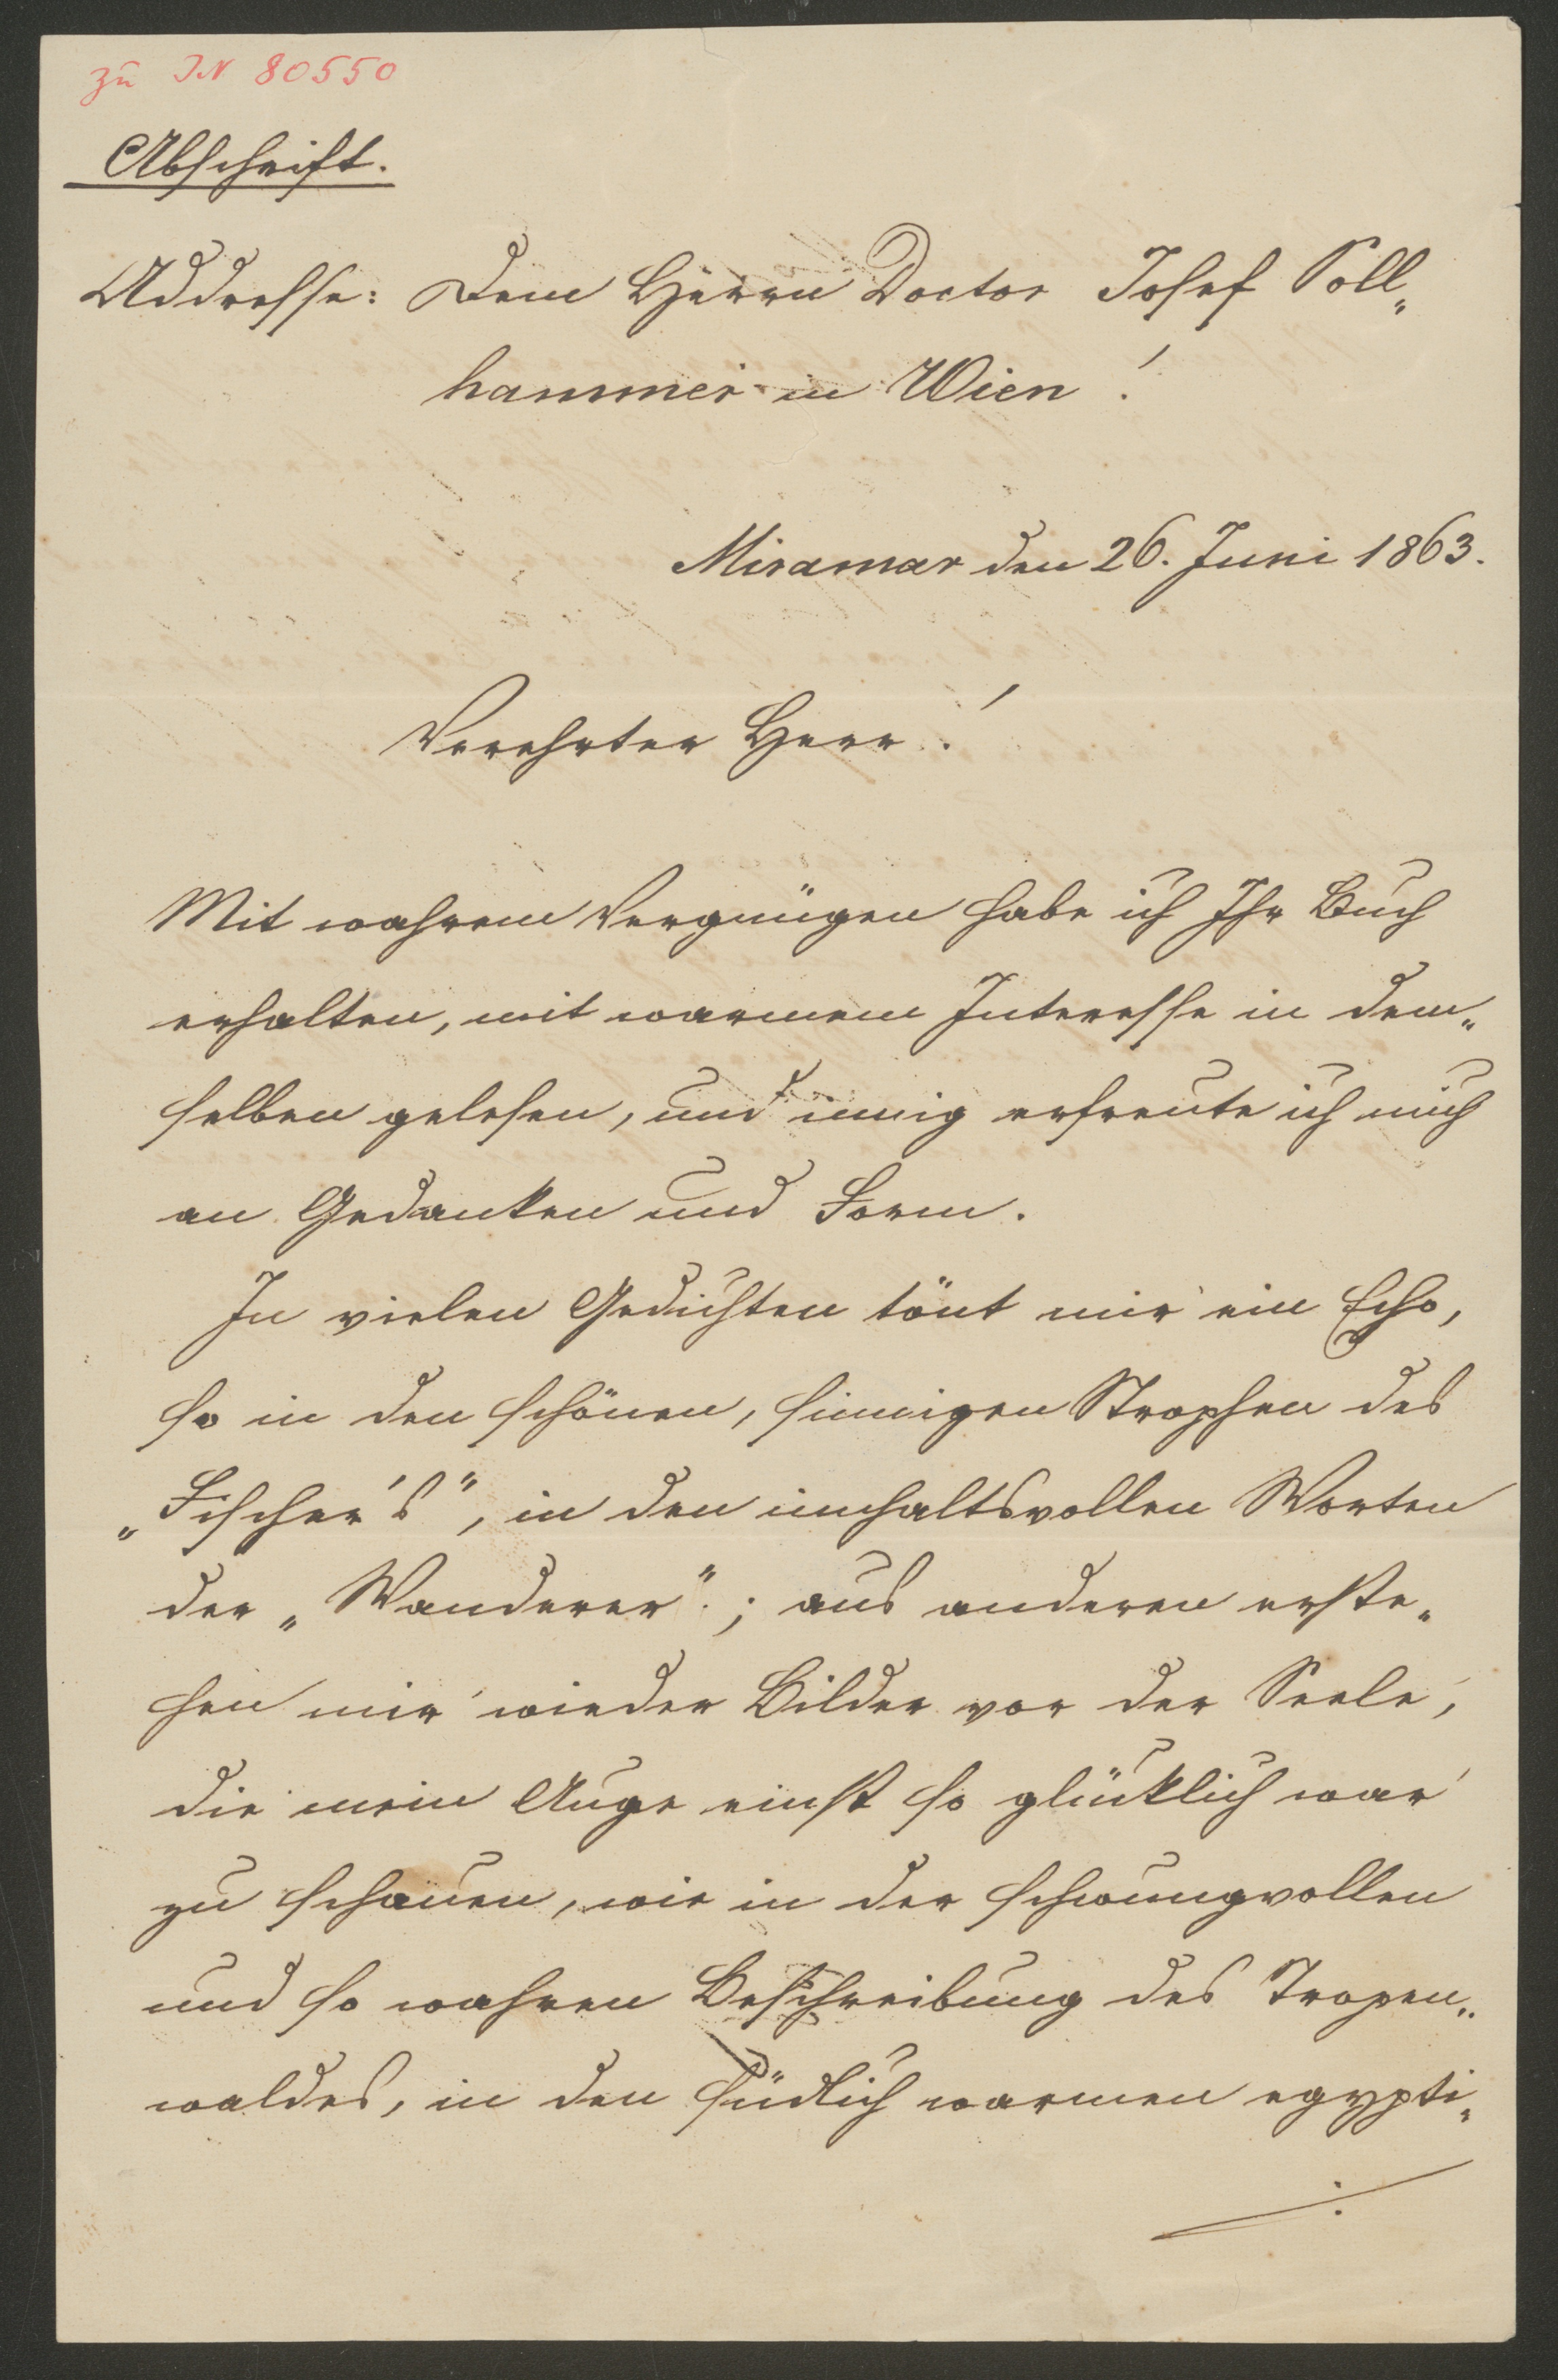 zu IN 80550
Abschrift.
Addresse: Dem Herrn Doctor Josef Poll„
hammer in Wien!
Miramar den 26. Juni 1863.
Verehrter Herr!
Mit wahrem Vergnügen habe ich Ihr Buch
erhalten, mit warmem Interesse in dem„
selben gelesen, und innig erfreute ich mich
an Gedanken und Form.
In vielen Gedichten tönt mir ein Echo,
so in den schönen, sinnigen Strophen des
„Fischer's", in den innhaltsvollen Worten
der „Wanderer"; aus anderen erste„
hen mir wieder Bilder vor der Seele,
die mein Auge einst so glücklich war
zu schauen, wie in der schwungvollen
und so wahren Beschreibung des Tropen„
waldes, in den südlich warmen egypti„